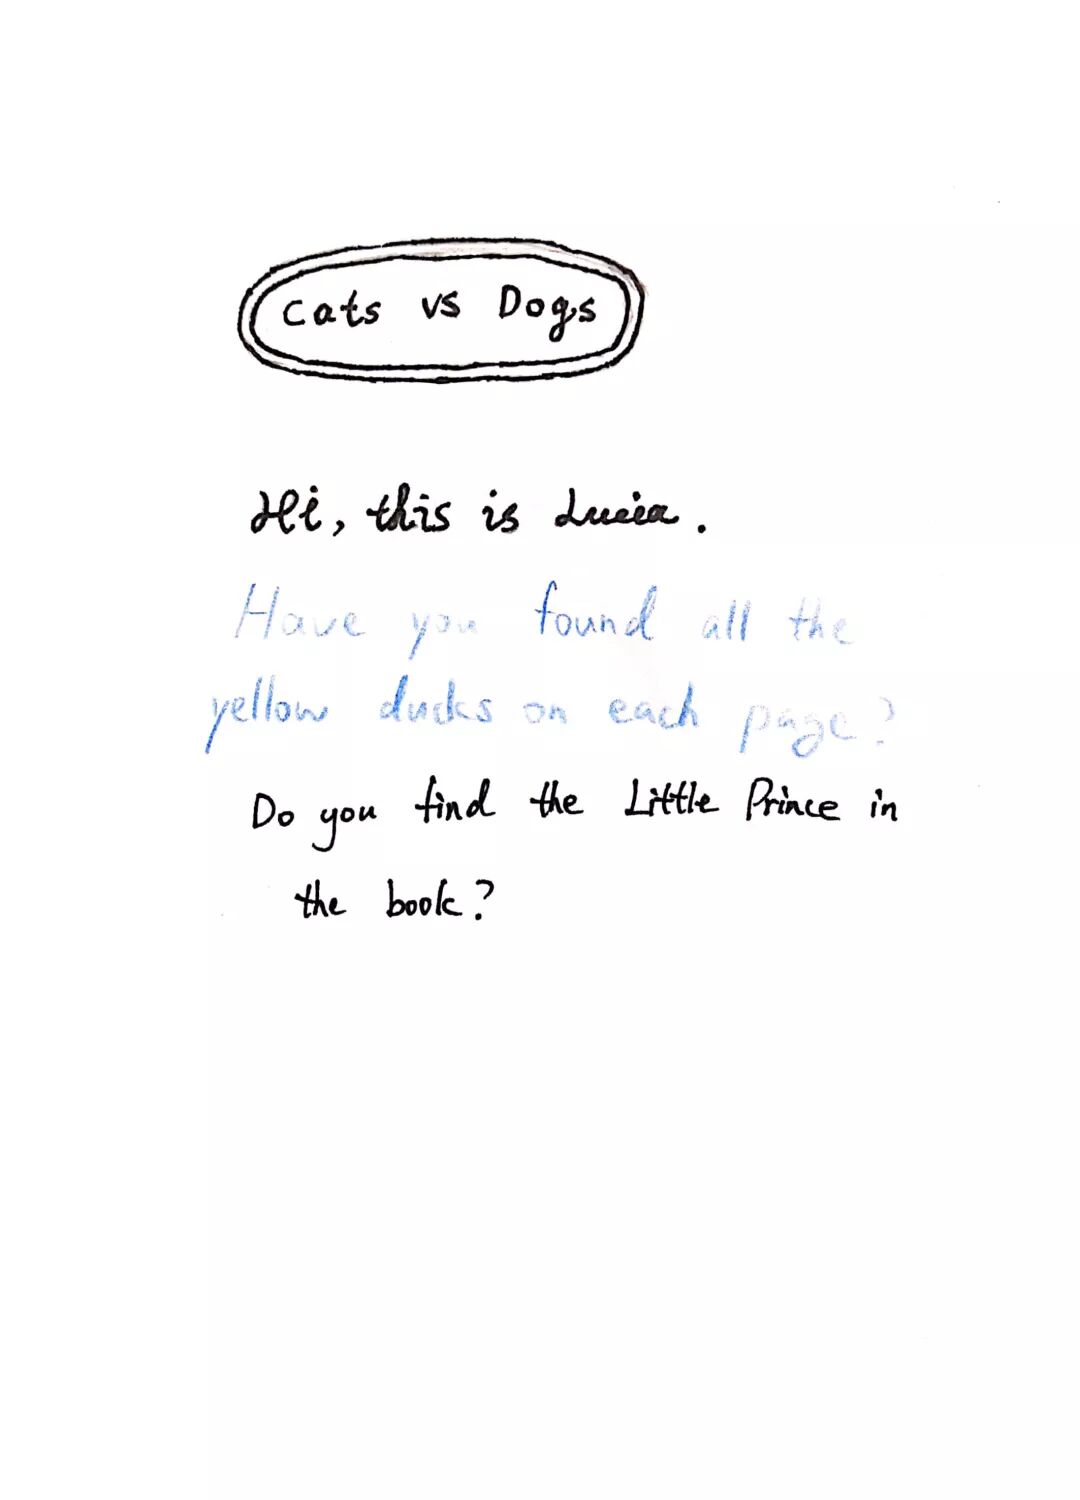 Cats vs Dogs
Hi, this is Lucia.
Have you found all the
yellow ducks on each page?
Do you find the Little Prince in
the book?